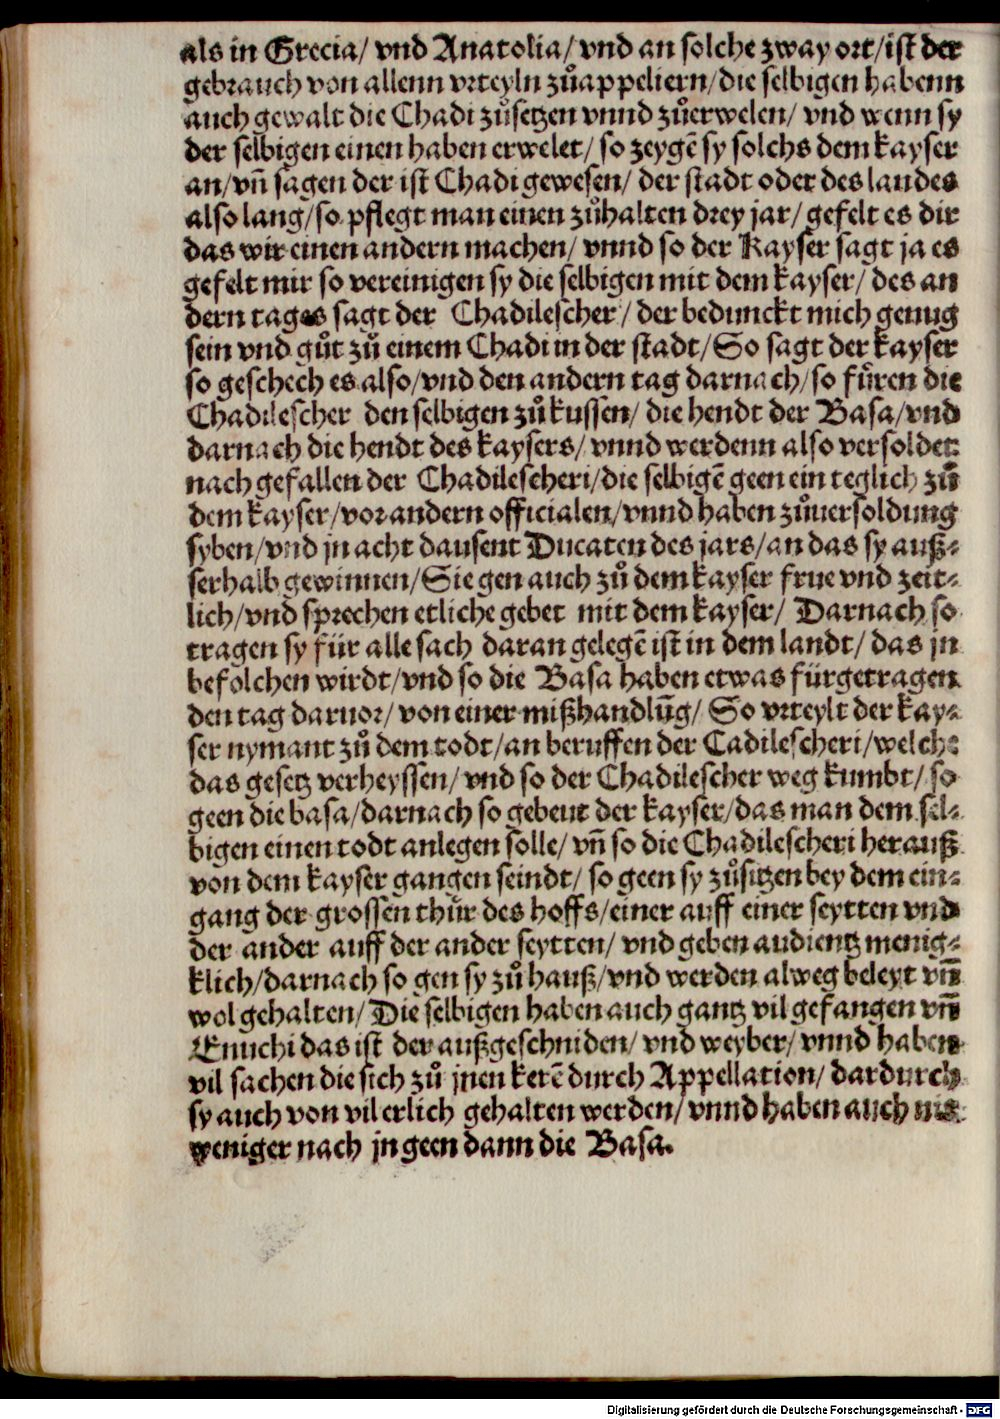 als in Grecia/ vnd Anatolia/ vnd an solche zway ort/ ist der
gebrauch von allenn vrteyln zůappeliern/ die selbigen habenn
auch gewalt die Chadi zůsetzen vnnd zůerwelen/ vnd wenn sy
der selbigen einen haben erwelet/ so zeygẽ sy solchs dem kayser
an/ vñ sagen der ist Chadi gewesen/ der stadt oder des landes
also lang/ so pflegt man einen zůhalten drey jar/ gefelt es dir
das wir einen andern machen/ vnnd so der Kayser sagt ja es
gefelt mir so vereinigen sy die selbigen mit dem kayser/ des an
dern tages sagt der Chadilescher/ der bedunckt mich genug
sein vnd gůt zů einem Chadi in der stadt/ So sagt der kayser
so geschech es also/ vnd den andern tag darnach/ so fůren die
Chadilescher den selbigen zů kussen/ die hendt der Basa/ vnd
darnach die hendt des kaysers/ vnnd werdenn also versoldet
nach gefallen der Chadilescheri/ die selbigẽ geen ein teglich zů
dem kayser/ vor andern officialen/ vnnd haben zůuersoldung
syben/ vnd jn acht dausent Ducaten des jars/ an das sy auß⸗
serhalb gewinnen/ Sie gen auch zů dem kayser frue vnd zeit⸗
lich/ vnd sprechen etliche gebet mit dem kayser/ Darnach so
tragen sy für alle sach daran gelegẽ ist in dem landt/ das jn
befolchen wirdt/ vnd so die Basa haben etwas fürgetragen
den tag daruor/ von einer mißhandlũg/ So vrteylt der kay⸗
ser nymant zů dem todt/ an beruffen der Cadilescheri/ welche
das gesetz verheyssen/ vnd so der Chadilescher weg kumbt/ so
geen die basa/ darnach so gebeut der kayser/ das man dem sel⸗
bigen einen todt anlegen solle/ vñ so die Chadilescheri herauß
von dem kayser gangen seindt/ so geen sy zůsitzen bey dem ein⸗
gang der grossen thůr des hoffs/ einer auff einer seytten vnd
der ander auff der ander seytten/ vnd geben audientz menig⸗
klich/ darnach so gen sy zů hauß/ vnd werden alweg beleyt vñ
wol gehalten/ Die selbigen haben auch gantz vil gefangen vñ
Enuchi das ist der außgeschniden/ vnd weyber/ vnnd haben
vil sachen die sich zů jnen kerẽ durch Appellation/ dardurch
sy auch von vil erlich gehalten werden/ vnnd haben auch nit
weniger nach jn geen dann die Basa.
Digitalisierung gefördert durch die Deutsche Forschungsgemeinschaft - DFG